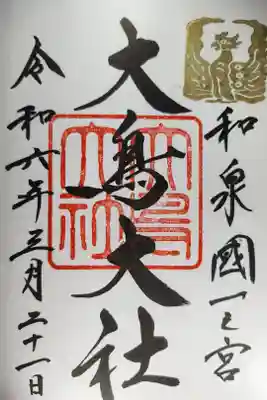 和泉國一之宮
大鳥大社
大鳥大社
令和六年三月二十一日